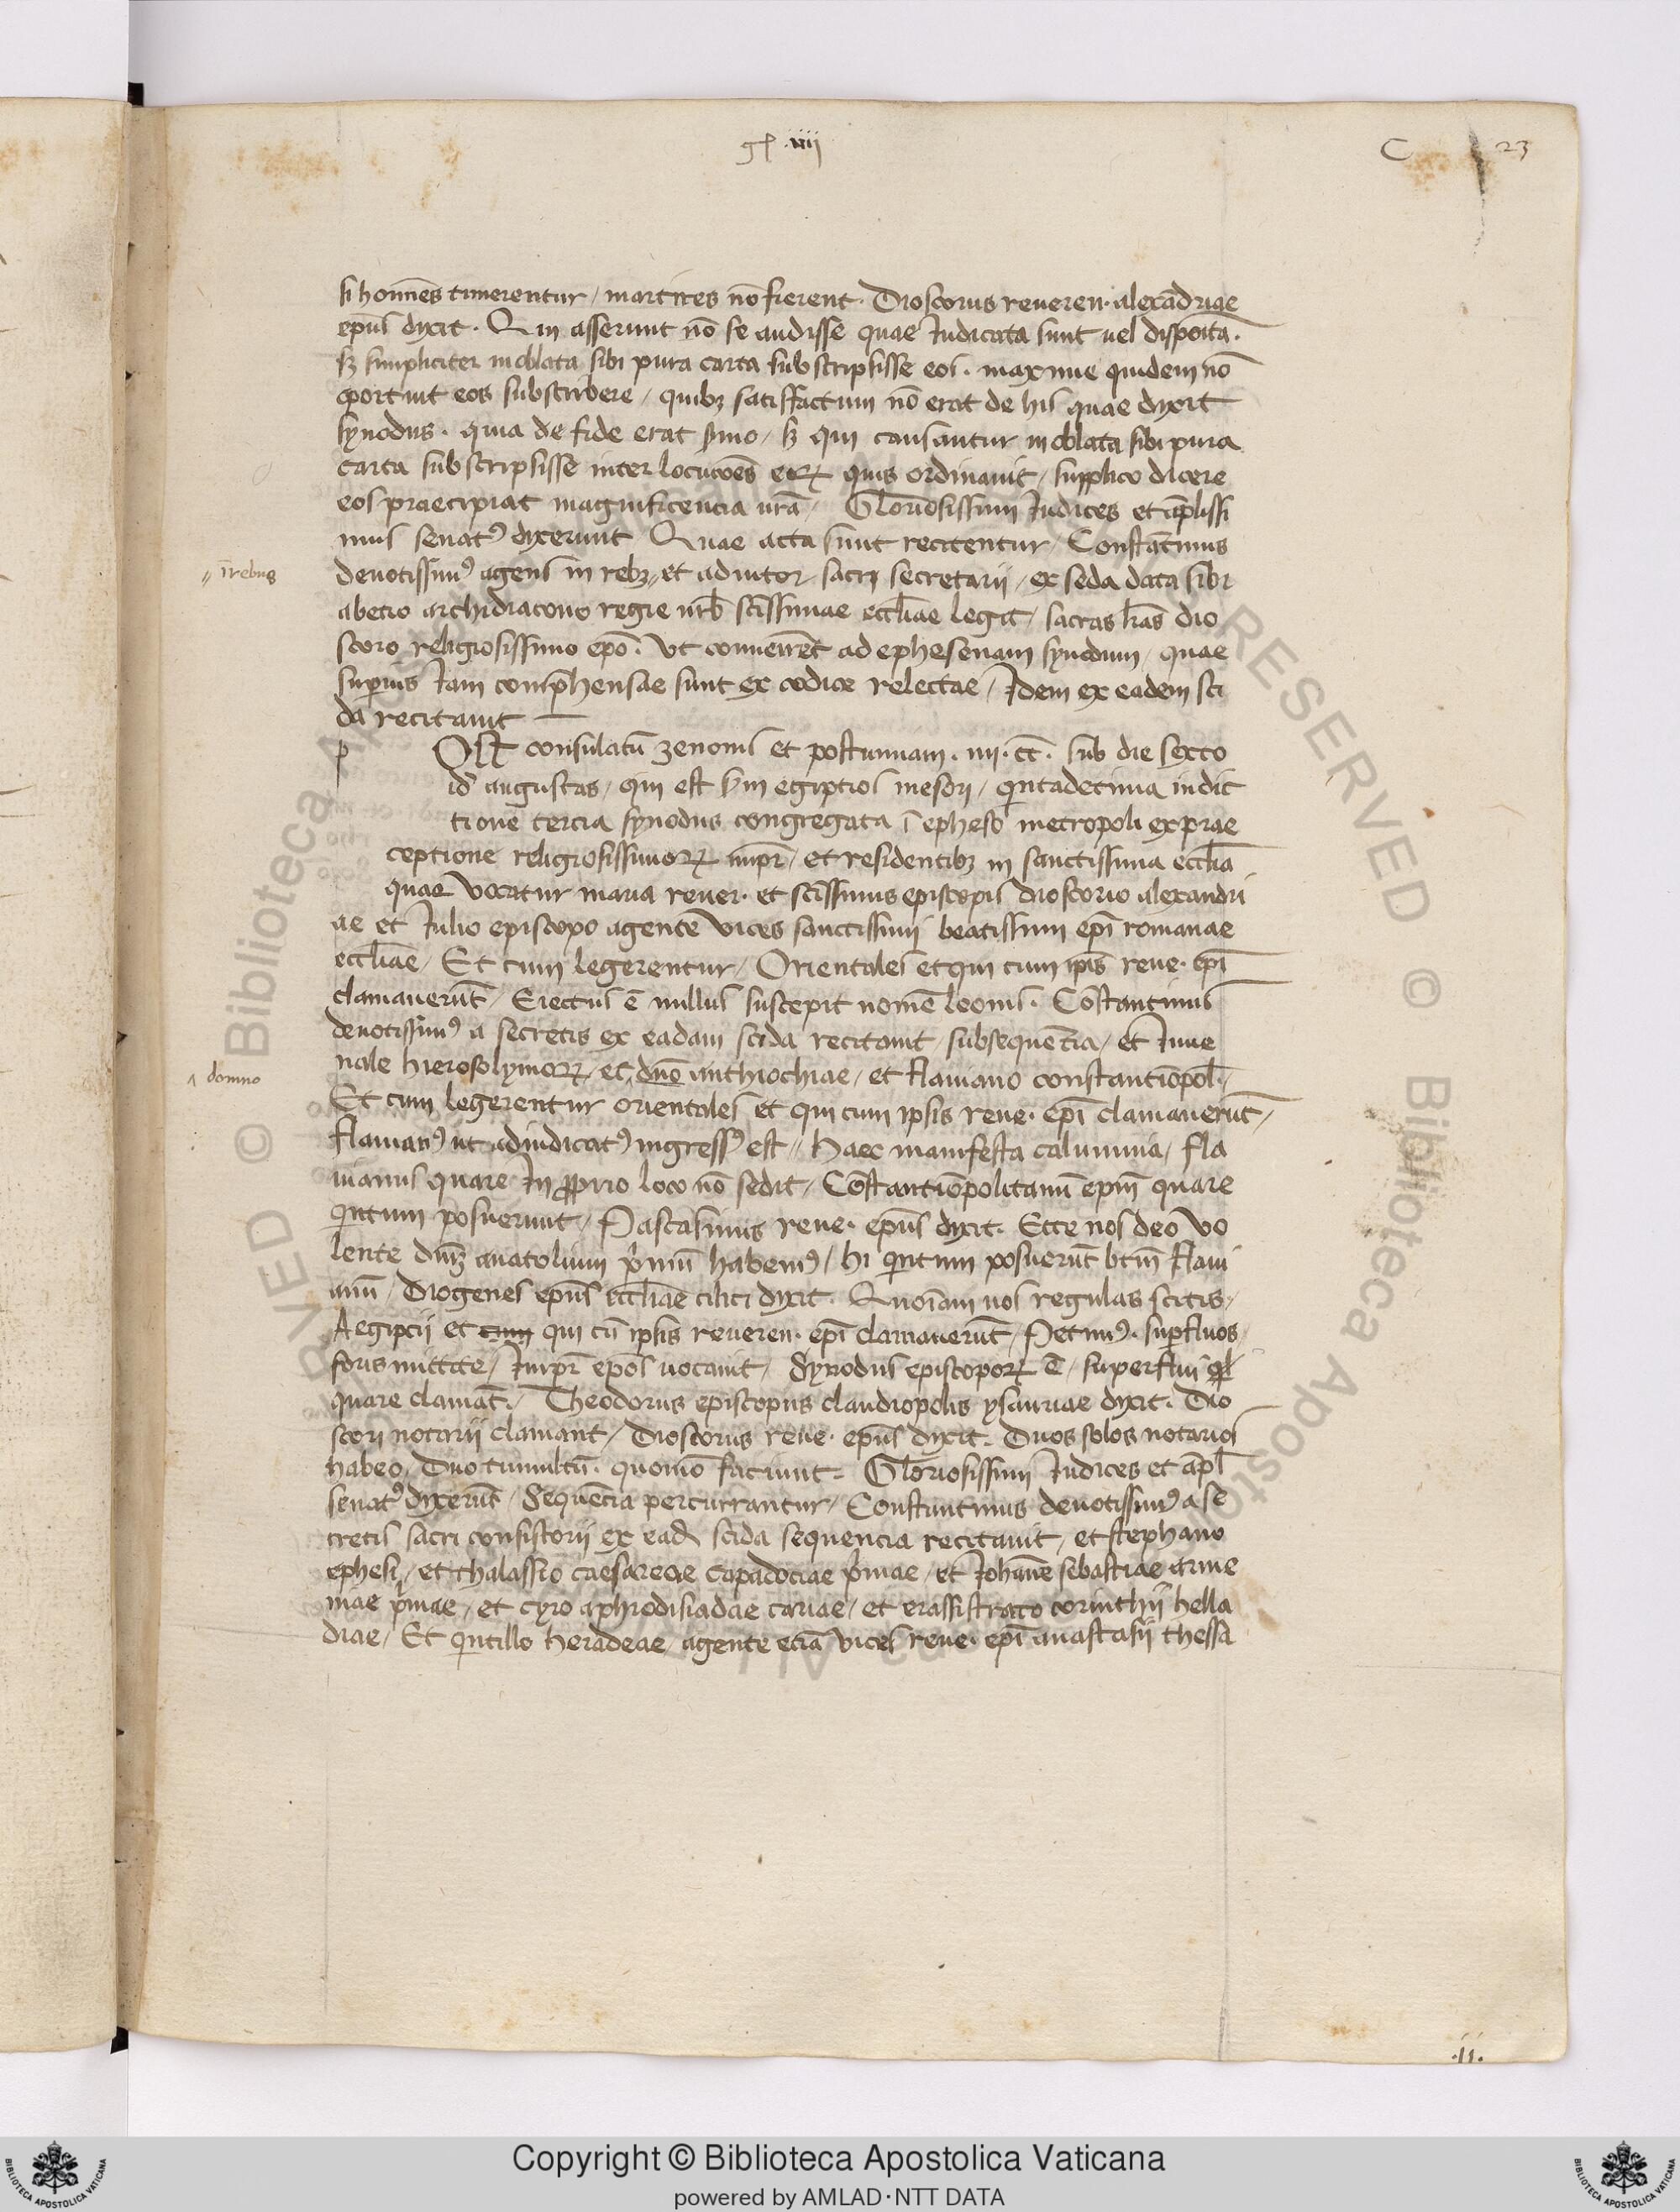 gl .iiii
C 23
si homīes timerentur / martires nō fierent · Dioscorus reueren· alexādriae
ep̄us dixit · Qui asserunt nō se audisse quae Iudicata sunt uel disposita ·
sꝫ simpliciter in oblata sibi pura carta subscripsisse eos · maxime quidem nō
oportuit eos subscribere / quibꝫ satisfactum nō erat de his quae dixit
synodus · quia de fide erat s̄mo / sꝫ qui causantur in oblata sibi pura
carta subscripsisse inter locucōes eoꝝ quis ordinauit / supplico dicere
eos praecipiat magnificencia ur̄a / Gloriosissimi Iudices et āplissi
mus senatꝰ dixerunt Quae acta sunt recitentur / Constātinus
" īrebus
deuotissimꝰ agens in rebꝫ " et adiutor sacri secretarii / ex seda data sibi
abetio archidiacono regie urb̄ sc̄issimae eccl̄iae legit / sacras l̄ras dio
scoro religiosissimo ep̄o · Vt conuenirēt ad ephesenam synodum / quae
superius Iam compr̄hensae sunt ex codice relectae / Idem ex eadem sci
da recitauit
p OST consulatū zenonis et postumiani · iii · cc̄ · sub die sexto
id' augustas / qui est s'm egiptios mesori / qintadecima indic
tione tercia synodus congregata ī epheso metropoli ex prae
ceptione religiosissimoꝝ impr̄ / et residentibꝫ in sanctissima eccl̄ia
quae vocatur maria reuer· et sc̄issimis episcopis dioscorio alexandri
ae et Iulio episcopo agente vices sanctissimi beatissimi ep̄i romanae
eccl̄iae / Et cum legerentur / Orientales et qui cum ip̄is reue· ep̄i
clamauerūt / Eiectus ē nullus suscepit nomē leonis · Cōstantinus
deuotissimꝰ a secretis ex eadam scida recitauit subsequētia / et Iuue
^ domno
nale hierosolymoꝝ / et ^ dn̄o anthiochiae / et flauiano constantiōpol· /
Et cum legerentur orientales et qui cum ipsis reue· ep̄i clamauerūt /
flauianꝰ ut adiudicatꝰ ingressꝰ est // Haec manifesta calumnia / fla
uianus quare In ꝓprio loco nō sedit / Cōstantiōpolitanū ep̄m quare
qintum posuerunt / Pascasinus reue· ep̄us dixit · Ecce nos deo vo
lente dn̄ꝫ anatolium p'mū habemꝰ / hi qintum posuerūt bt̄m flaui
anū / Diogenes ep̄us eccl̄iae cilici dixit · Quoīam uos regulas scitis /
Aegiptij et cum qui cū ipsis reueren· ep̄i clamauerūt / Petimꝰ · superfluos
foris mittite / Impr̄ ep̄os uocauit / Synodus episcopoꝝ ē / superflui
quare clamāt · / Theodorus episcopus claudiopolis ysauriae dixit · Dio
scori notarij clamant / Dioscorus reue· ep̄us dixit · Duos solos notarios
habeo / Duo tumultū · quomō faciunt = Gloriosissimi Iudices et āpl
senatꝰ dixerūt / Sequēcia percurrantur / Constantinus deuotissimꝰ a se
cretis sacri consistorij ex ead' scida sequencia recitauit / et stephano
ephesi / et thalassio caesareae capadociae p'mae / et Iohāne sebastiae arme
niae p'mae / et cyro aphrodisiadae cariae / et erassistrato corinthij hella
diae / Et qintillo heracleae / agente eciā vices reue· ep̄i anastasij thessa
·ii·
Copyright © Biblioteca Apostolica Vaticana
powered by AMLAD·NTT DATA